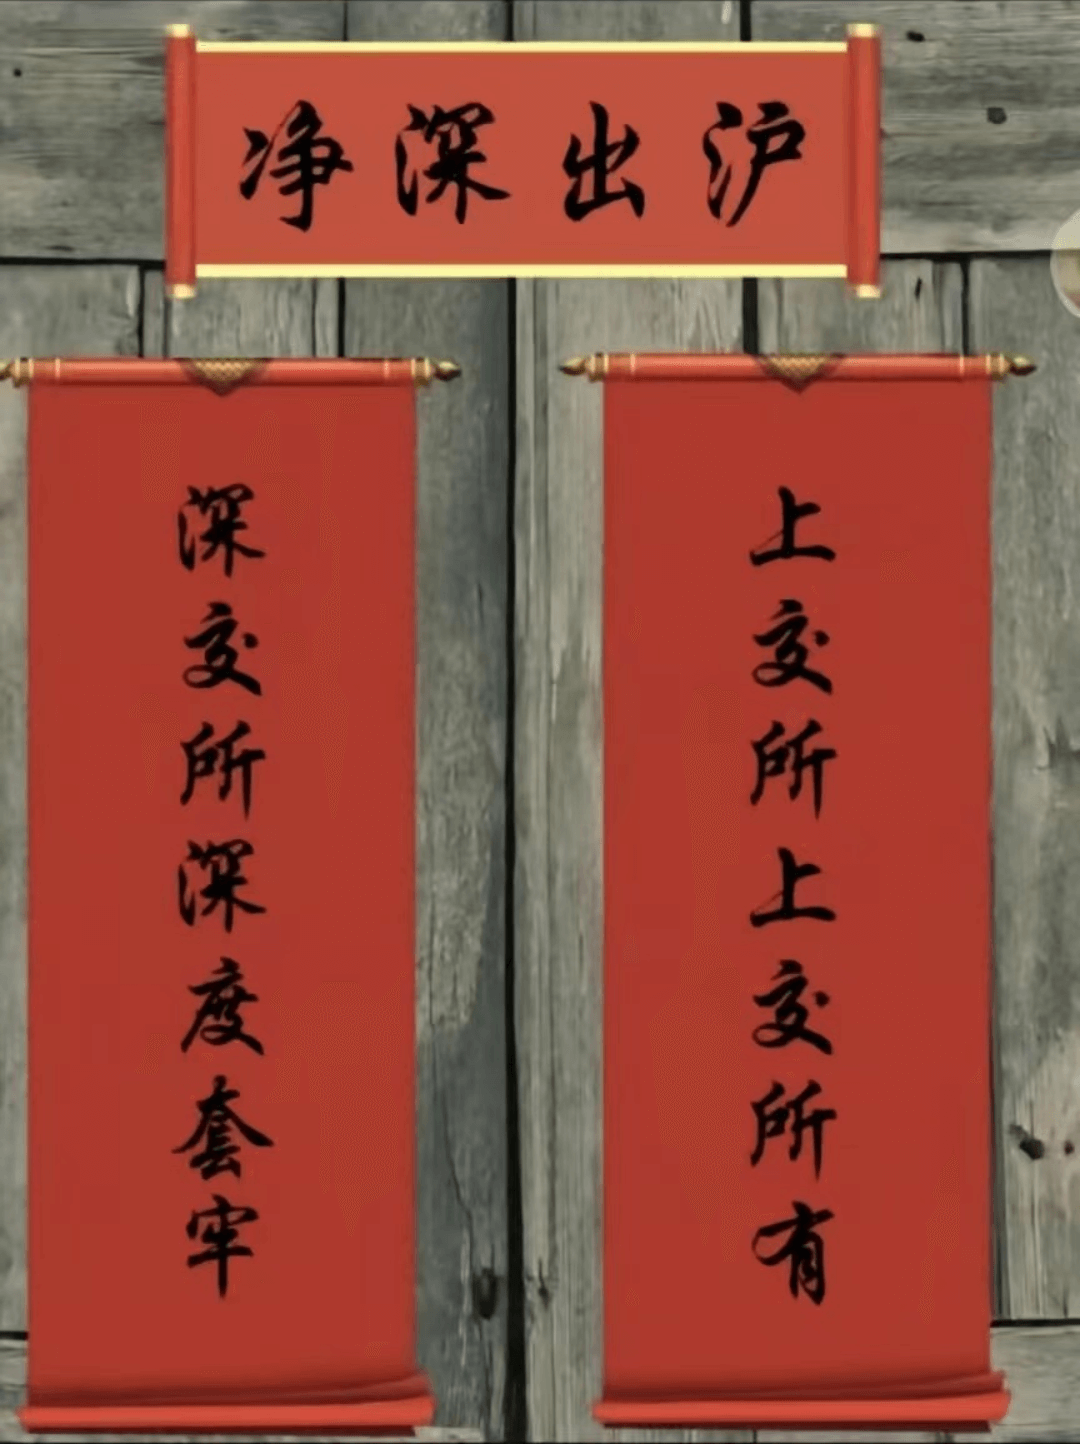 净深出沪
上交所上交所有
深交所深度套牢